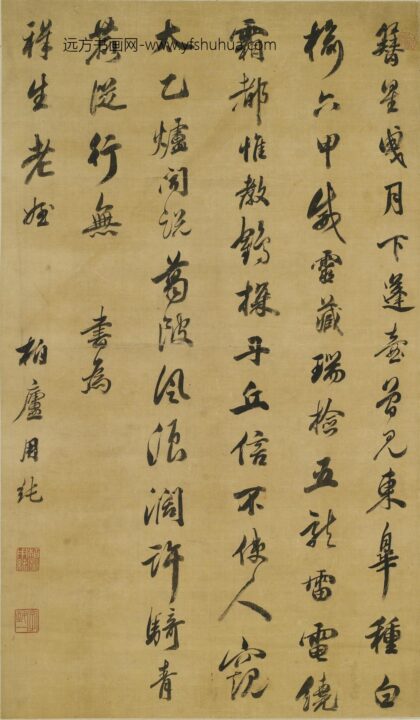 远方书画网-www.yfshuhua.com
簪星曳月下蓬壺曾見東皐種白
榆六甲威靈藏瑞檢五龍雷電繞
霜都惟教鶴探丹丘信不使人窺
太乙爐聞説葛陂風浪濶許騎青
鹿從行無 書為
祥生老姪
柏廬用純